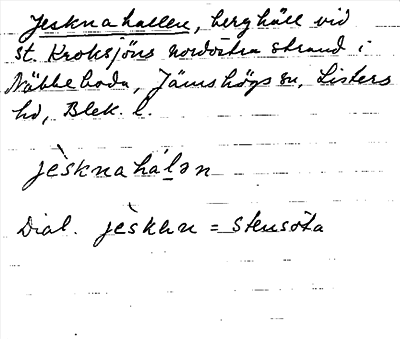 Jesknahallen, berghäll vid
St. Kroksjöns nordöstra strand i
Näbbeboda, Jämshögs sn, Listers
hd, Blek. l.
jèsknahálən
Dial. jèskən = stensöta